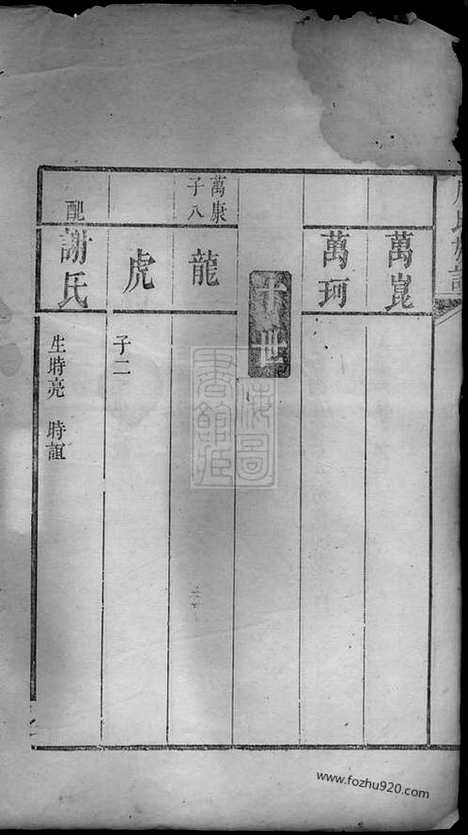 萬崑
萬珂
十世
萬康
子八
龍
虎
子二
配
謝氏
生時亮 時誼
上海圖
書館藏
www.fozhu920.com